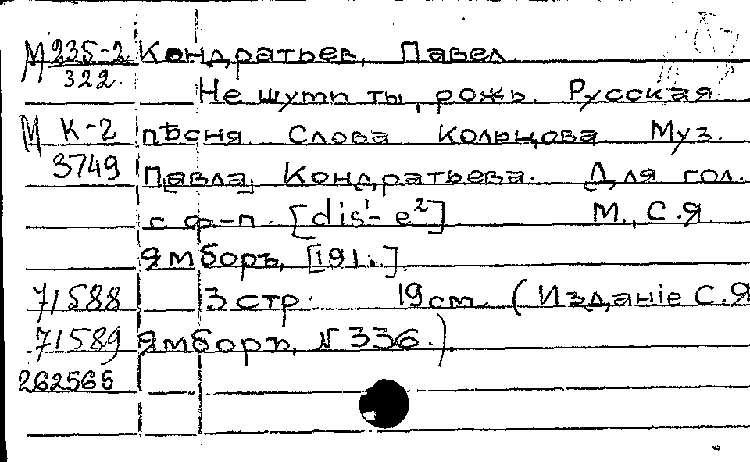 М 235-2 Кондратьев, Павел
322. Не шути ты, рожь. Русская
М К-2 пѣсня. Слова Кольцова Муз.
3749 П[авла] Кондратьева. Для гол.
с ф-п. [dis¹- e²] М., С.Я.
Ямборъ, [191..].
71588 3 стр. 19 cm. (Изданіе С.Я
71589 Ямборъ, N 336.).
262565